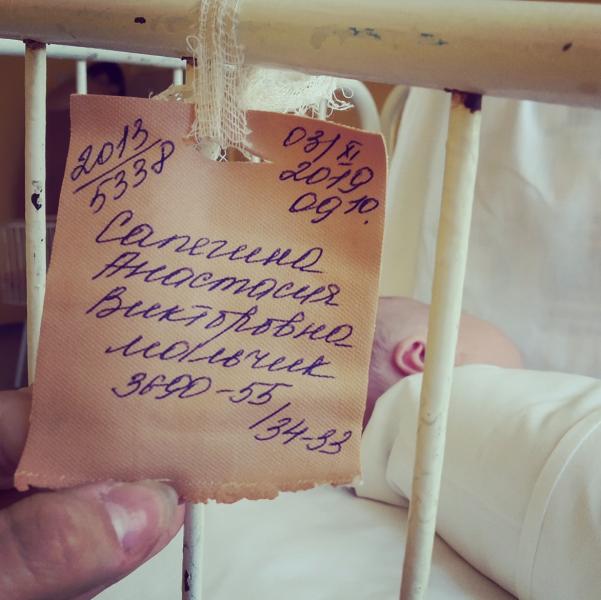 2013/5338
03/XI
2019
09 10.
Сапегина
Анастасия
Викторовна
мальчик
3690-55
/34-33